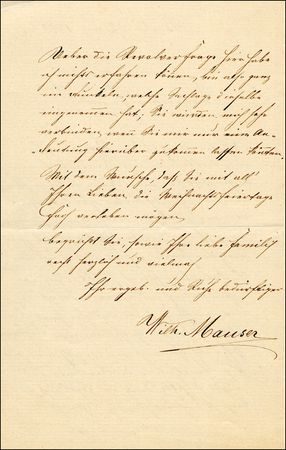 Ueber die Revolverfrage hier habe
ich nichts erfahren können, bin also ganz
im Dunkeln, welche Sachlage dieselbe
eingenommen hat. Sie würden mich sehr
verbinden, wenn Sie mir nur eine An-
deutung hierüber zukommen lassen könnten.
Mit dem Wunsche, daß Sie mit all'
Ihren Lieben, die Weihnachtsfeiertage
verleben mögen,
begrüßt Sie, sowie Ihre liebe Familie
recht herzlich und vielmal
Ihr ergeb. und Ruhe bedürftiger
Wilh. Mauser